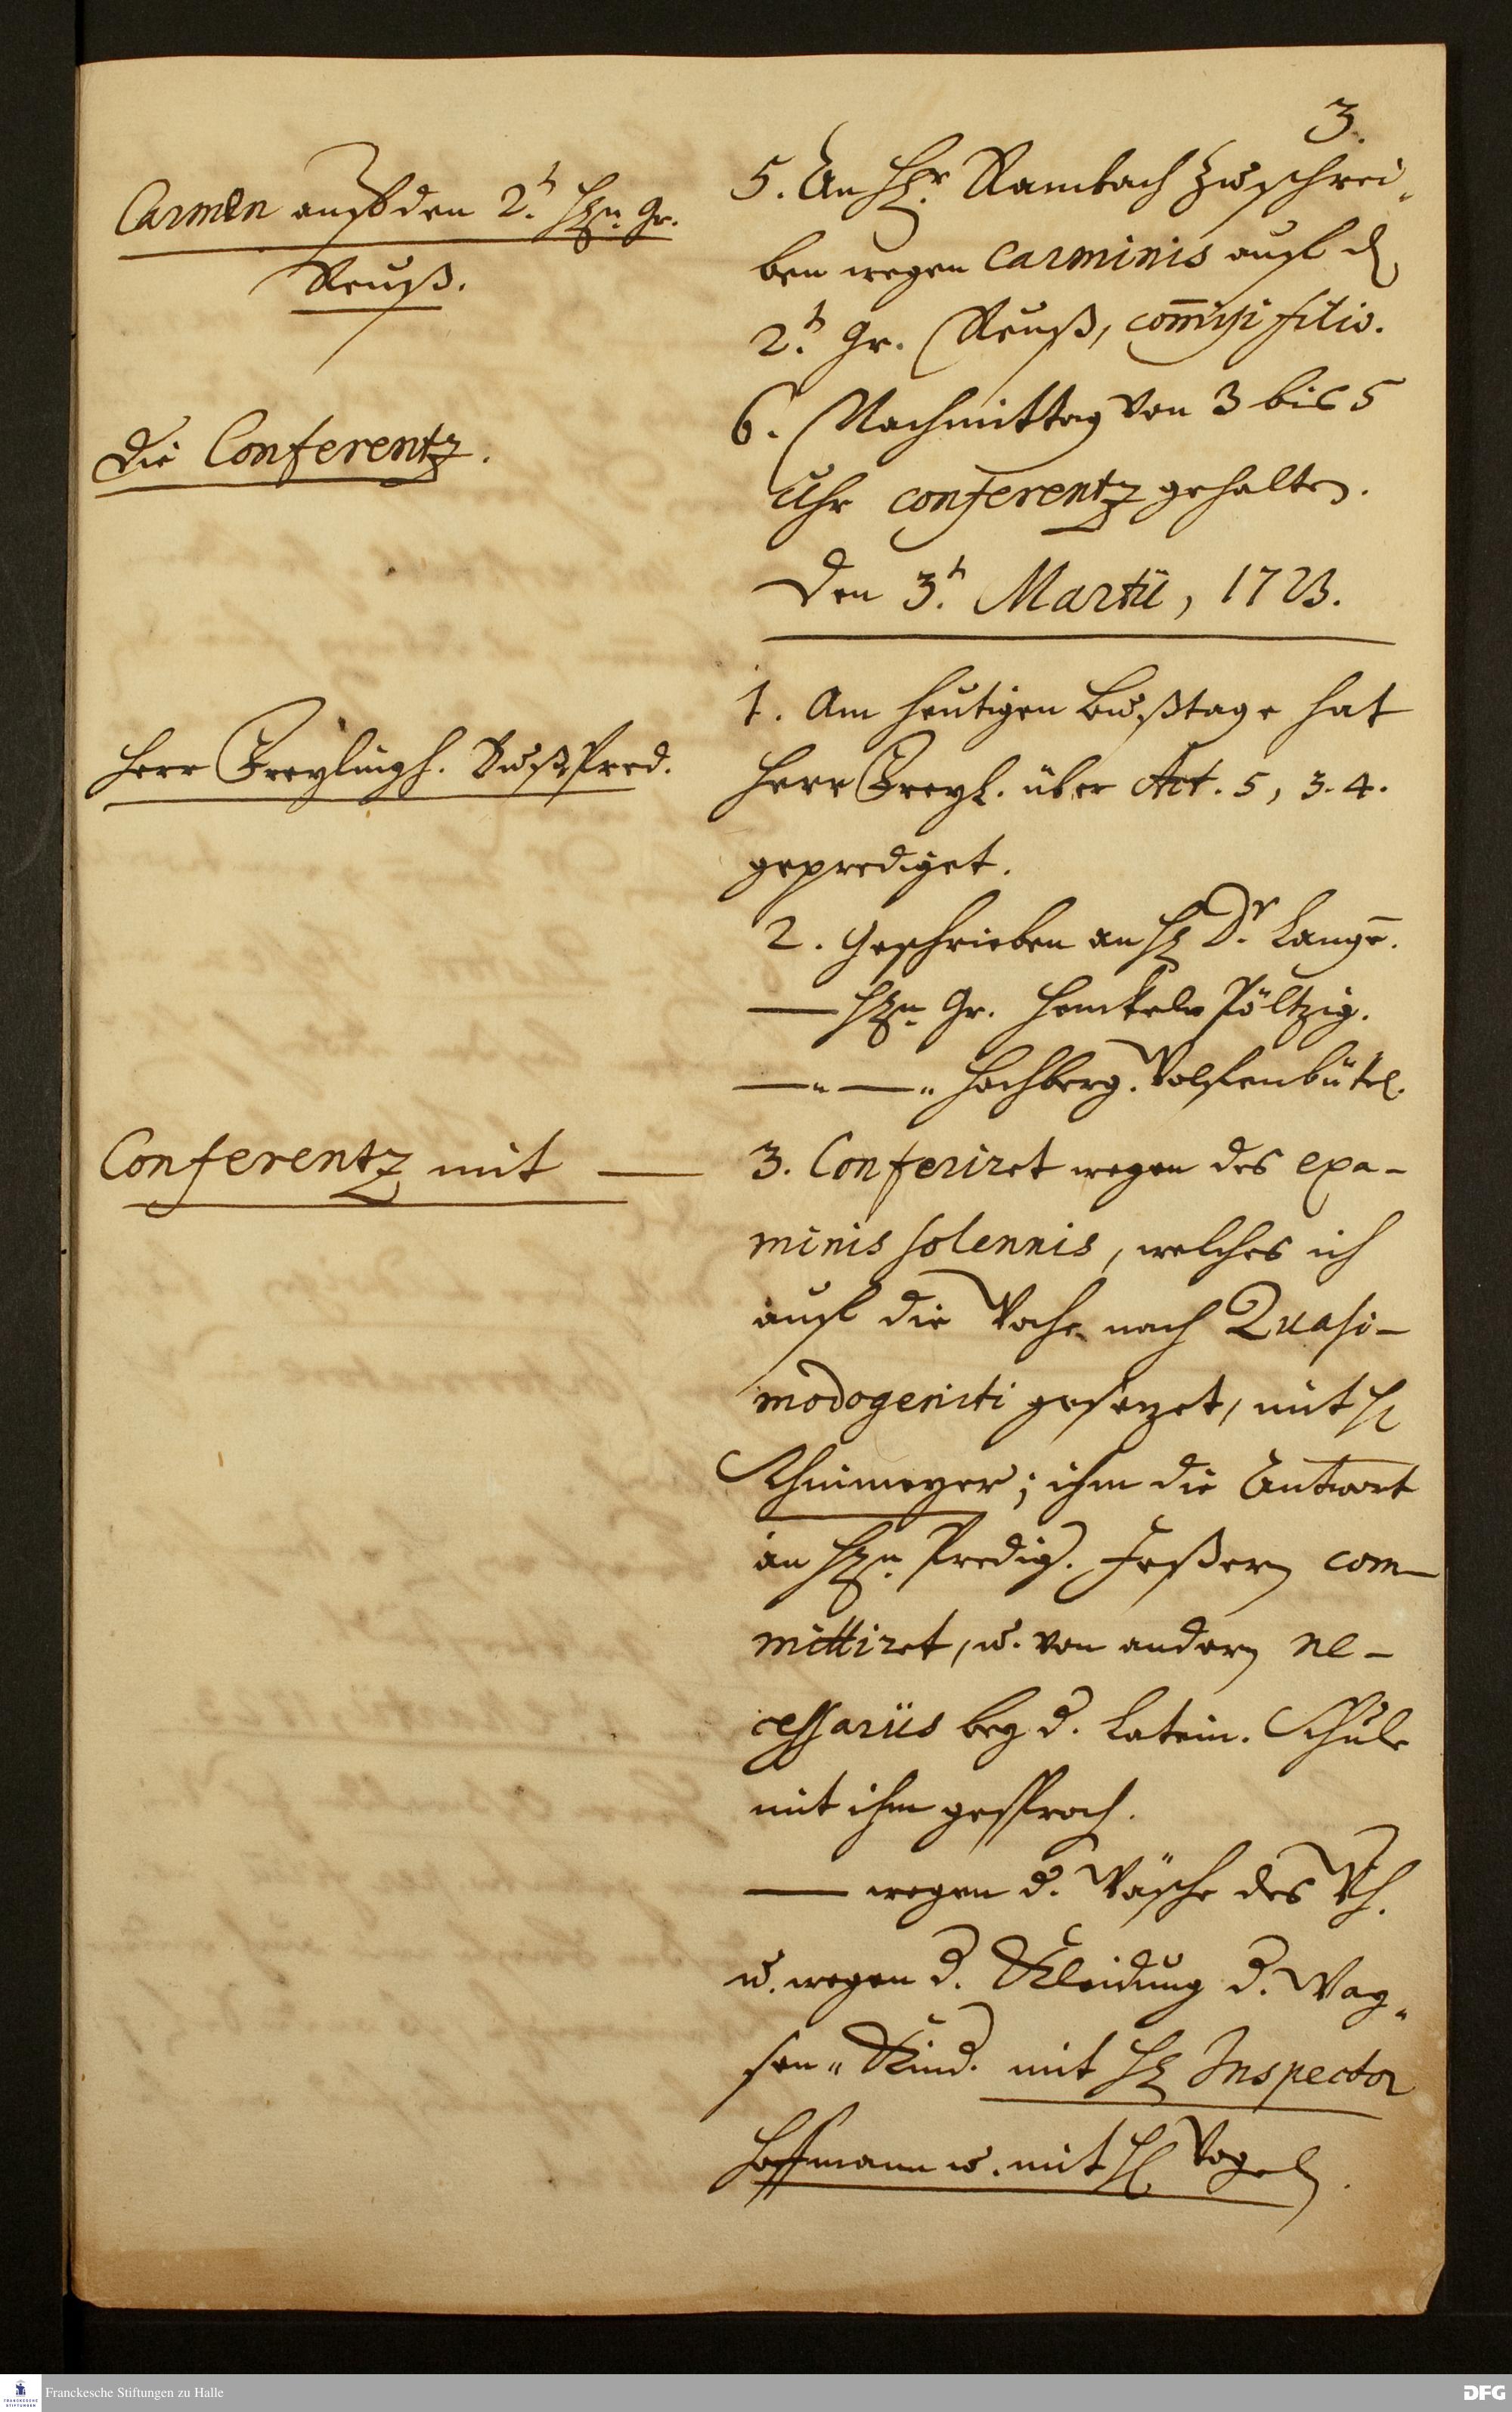 3.
Carmen auf den 2.t Hrn. Gr.
Reuß.
5. An Hr. Rambach zu schrei-
ben wegen carminis auf d
2.t Gr. Reuß, com̄isi filio.
Die Conferentz.
6. Nachmittag von 3 bis 5
Uhr conferentz gehalten.
Den 3.t Martii, 1723.
1. Am heutigen Bußtage hat
Herr Freylingh. BußPred.
Herr Freyl. über Act. 5, 3. 4.
geprediget.
2. Geschrieben an H Dr. Langē.
— Hrn Gr. Henckel Pöltzig.
— " — " Hochberg. Wolfenbütel.
Conferentz mit —
3. Conferiret wegen des exa-
minis solennis, welches ich
auf die Woche nach Quasi-
modogeniti gesetzet, mit H
; ihm die Antwort
an Hrn Predig. com-
mittiret, u. von andern ne-
cessariis bey d. Latein. Schule
mit ihm gesproch.
— wegen d. Wäsche des Wh.
u. wegen d. Kleidung d. Way-
sen-Kind. mit H Inspector
Hoffmann u. mit H Vogel.
Franckesche Stiftungen zu Halle
FRANCKESCHE STIFTUNGEN
DFG